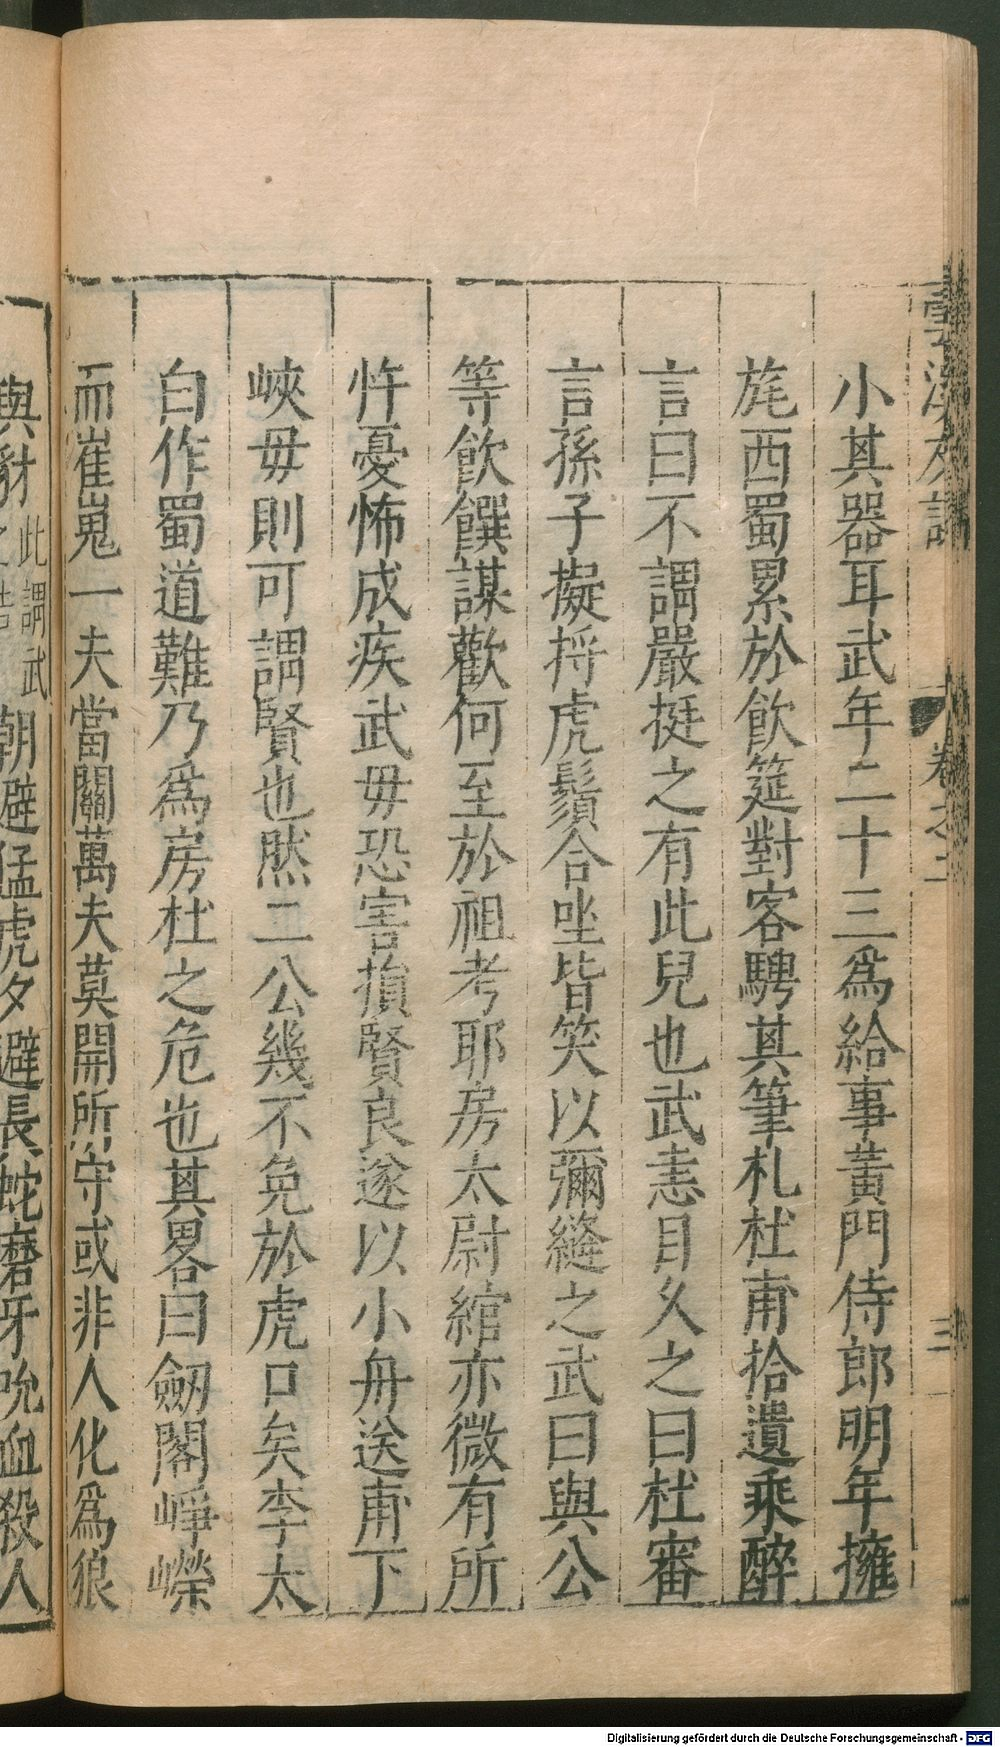 小其器耳武年二十三爲給事黃門侍郎明年擁
旄西蜀累於飲筵對客騁其筆札杜甫拾遺乘醉
言曰不謂嚴挺之有此兒也武恚目久之曰杜審
言孫子擬捋虎鬚合坐皆笑以彌縫之武曰與公
等飲饌謀歡何至於祖考耶房太尉綰亦微有所
忤憂怖成疾武毋恐害損賢良遂以小舟送甫下
峽毋則可謂賢也然二公幾不免於虎口矣李太
白作蜀道難乃爲房杜之危也其畧曰劒閣崢嶸
而崔嵬一夫當關萬夫莫開所守或非人化爲狼
與豺
此謂武
朝避猛虎夕避長蛇磨牙吮血殺人
卷之二
三
Digitalisierung gefördert durch die Deutsche Forschungsgemeinschaft - DFG